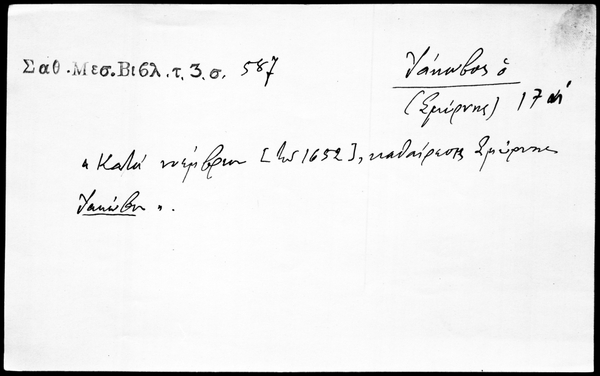 Σαθ. Μεσ. Βιβλ. τ. 3. σ. 587
Ἰάκωβος ὁ
(Σμύρνης) 17 αἰ
« Κατὰ νοέμβριον [τοῦ 1652], καθαίρεσις Σμύρνης
Ἰακώβου ».